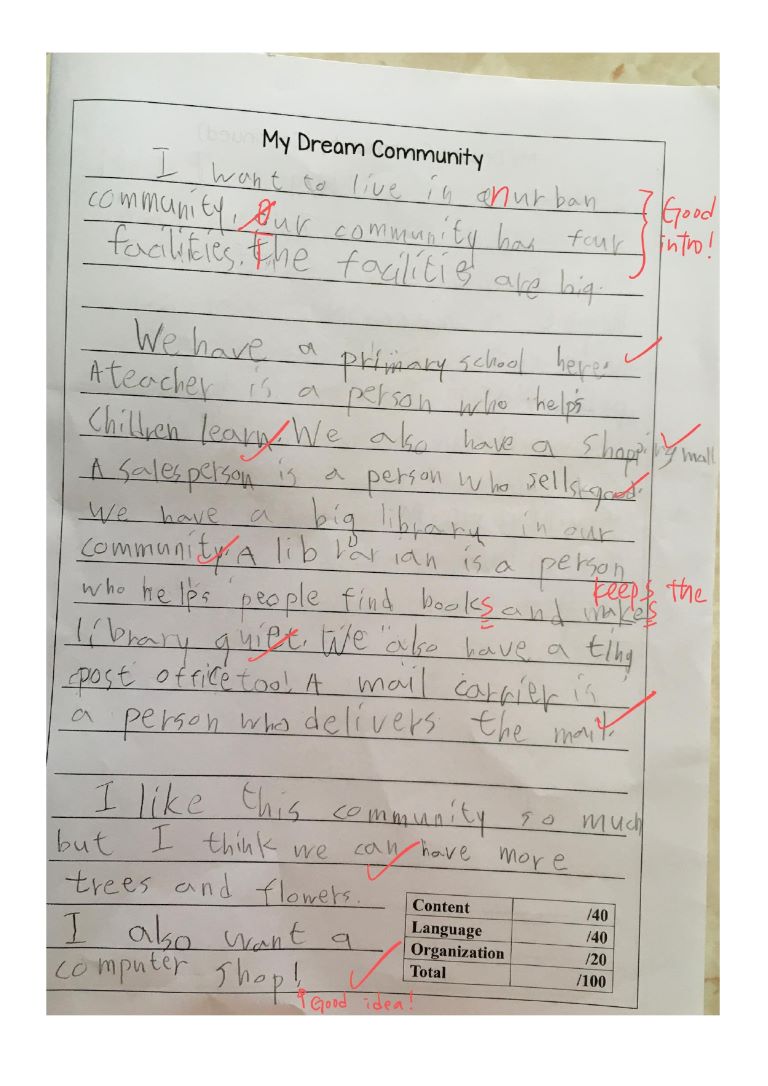 My Dream Community
I want to live in an urban
community. Our community has four
facilities. The facilities are big.
Good
intro!
We have a primary school here.
A teacher is a person who helps
Children learn. We also have a shopping mall
A salesperson is a person who sells good.
We have a big library in our
community. A librarian is a person
keeps the
who helps people find books and makes
library quiet. We also have a tiny
post office too! A mail carrier is
a person who delivers the mail.
I like this community so much
but I think we can have more
trees and flowers.
I also want a
computer shop!
Good idea!
Content /40
Language /40
Organization /20
Total /100